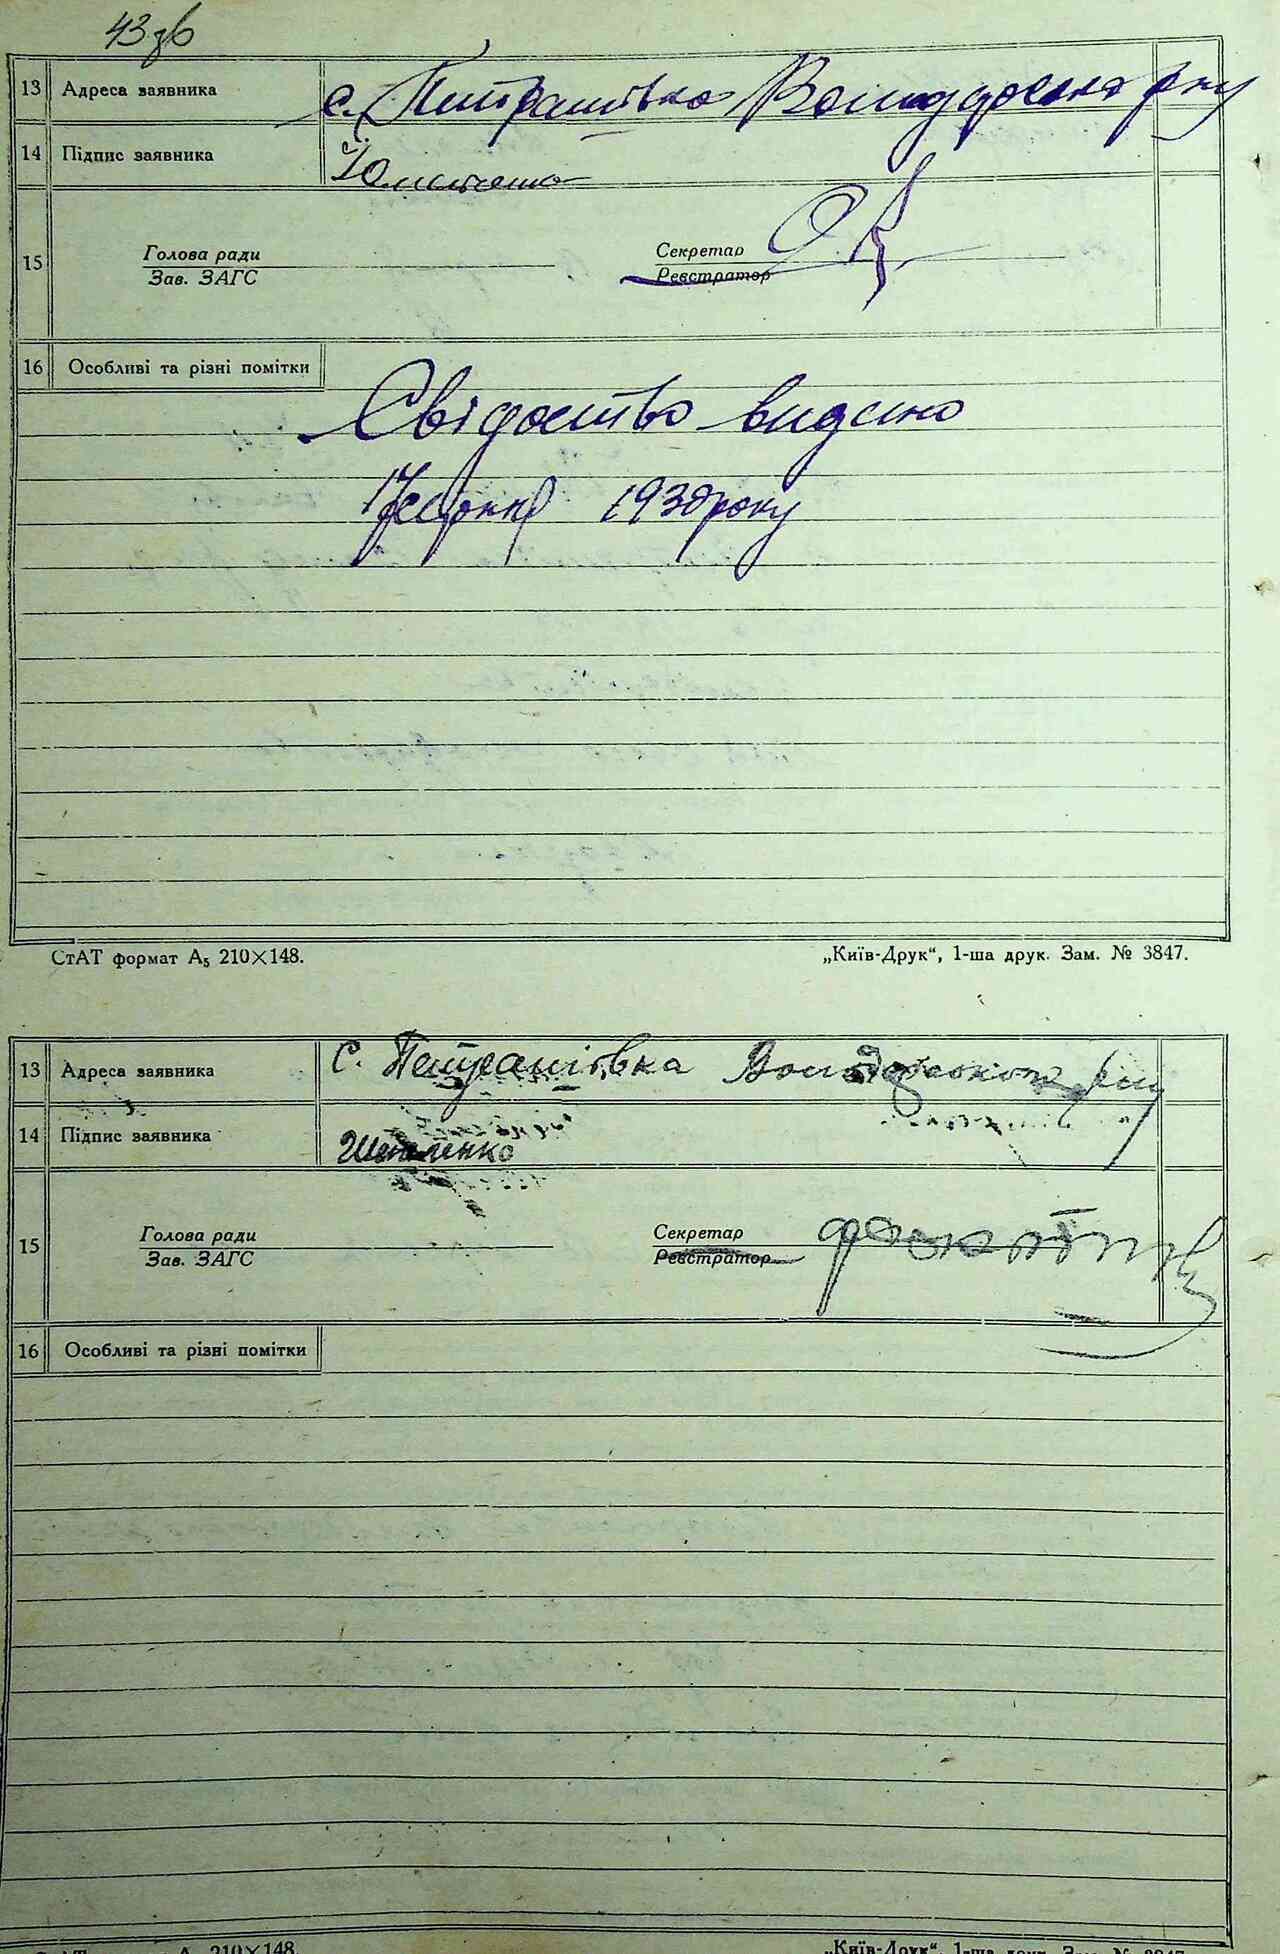 43 зв
13 Адреса заявника с. Петрашівка Володарська р-ну
14 Підпис заявника
15 Голова ради Секретар
Зав. ЗАГС Реєстратор
16 Особливі та різні помітки
Свідоство видано
17 серпня 1930 року
СтАТ формат А5 210×148. „Київ-Друк“, 1-ша друк. Зам. № 3847.
13 Адреса заявника с. Петрашівка Володарського р-ну
14 Підпис заявника
15 Голова ради Секретар
Зав. ЗАГС Реєстратор
16 Особливі та різні помітки
СтАТ формат А5 210×148. „Київ-Друк“, 1-ша друк. Зам. № 3847.